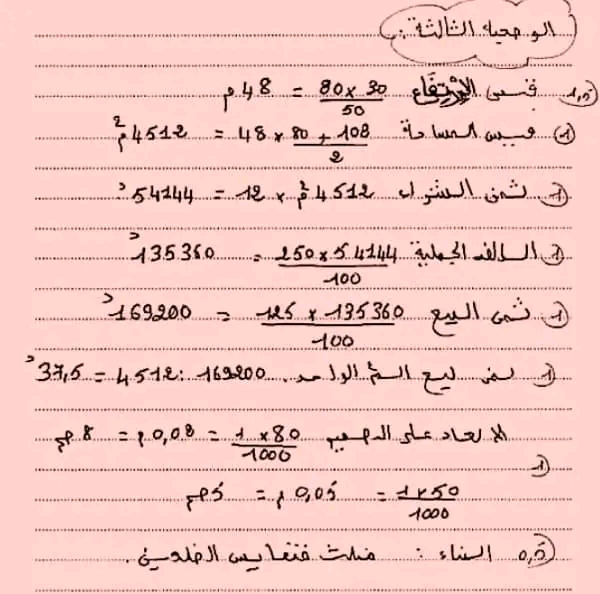 الوضعية الثالثة:
1,5) قيس الإرتفاع 80 × 30 / 50 = 48 م
1) قيس المساحة 108 + 80 × 48 / 2 = 4512 م²
1) ثمن الشراء 4512 م² × 12 = 54144 د
1) الكلفة الجملية 54144 × 250 / 100 = 135360 د
1) ثمن البيع 135360 × 125 / 100 = 169200 د
1) ثمن بيع الم² الواحد 169200 : 4512 = 37,5 د
الابعاد على التصميم 80 × 1 / 1000 = 0,08 م = 8 صم
1)
50 × 1 / 1000 = 0,05 م = 5 صم
0,5) البناء : مثلث متقايس الضلعين.